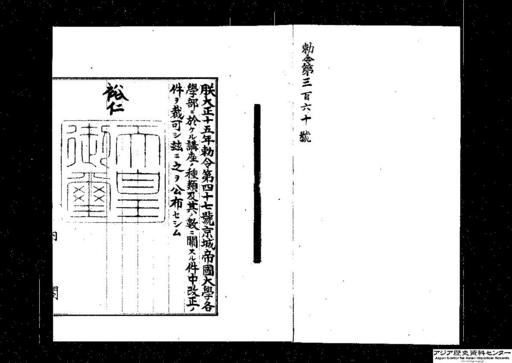 勅令第三百六十號
朕大正十五年勅令第四十七號京城帝國大學各
學部ニ於ケル講座ノ種類及其ノ數ニ關スル件中改正ノ
件ヲ裁可シ玆ニ之ヲ公布セシム
裕仁
天皇
御璽
内閣
アジア歴史資料センター
Japan Center for Asian Historical Records